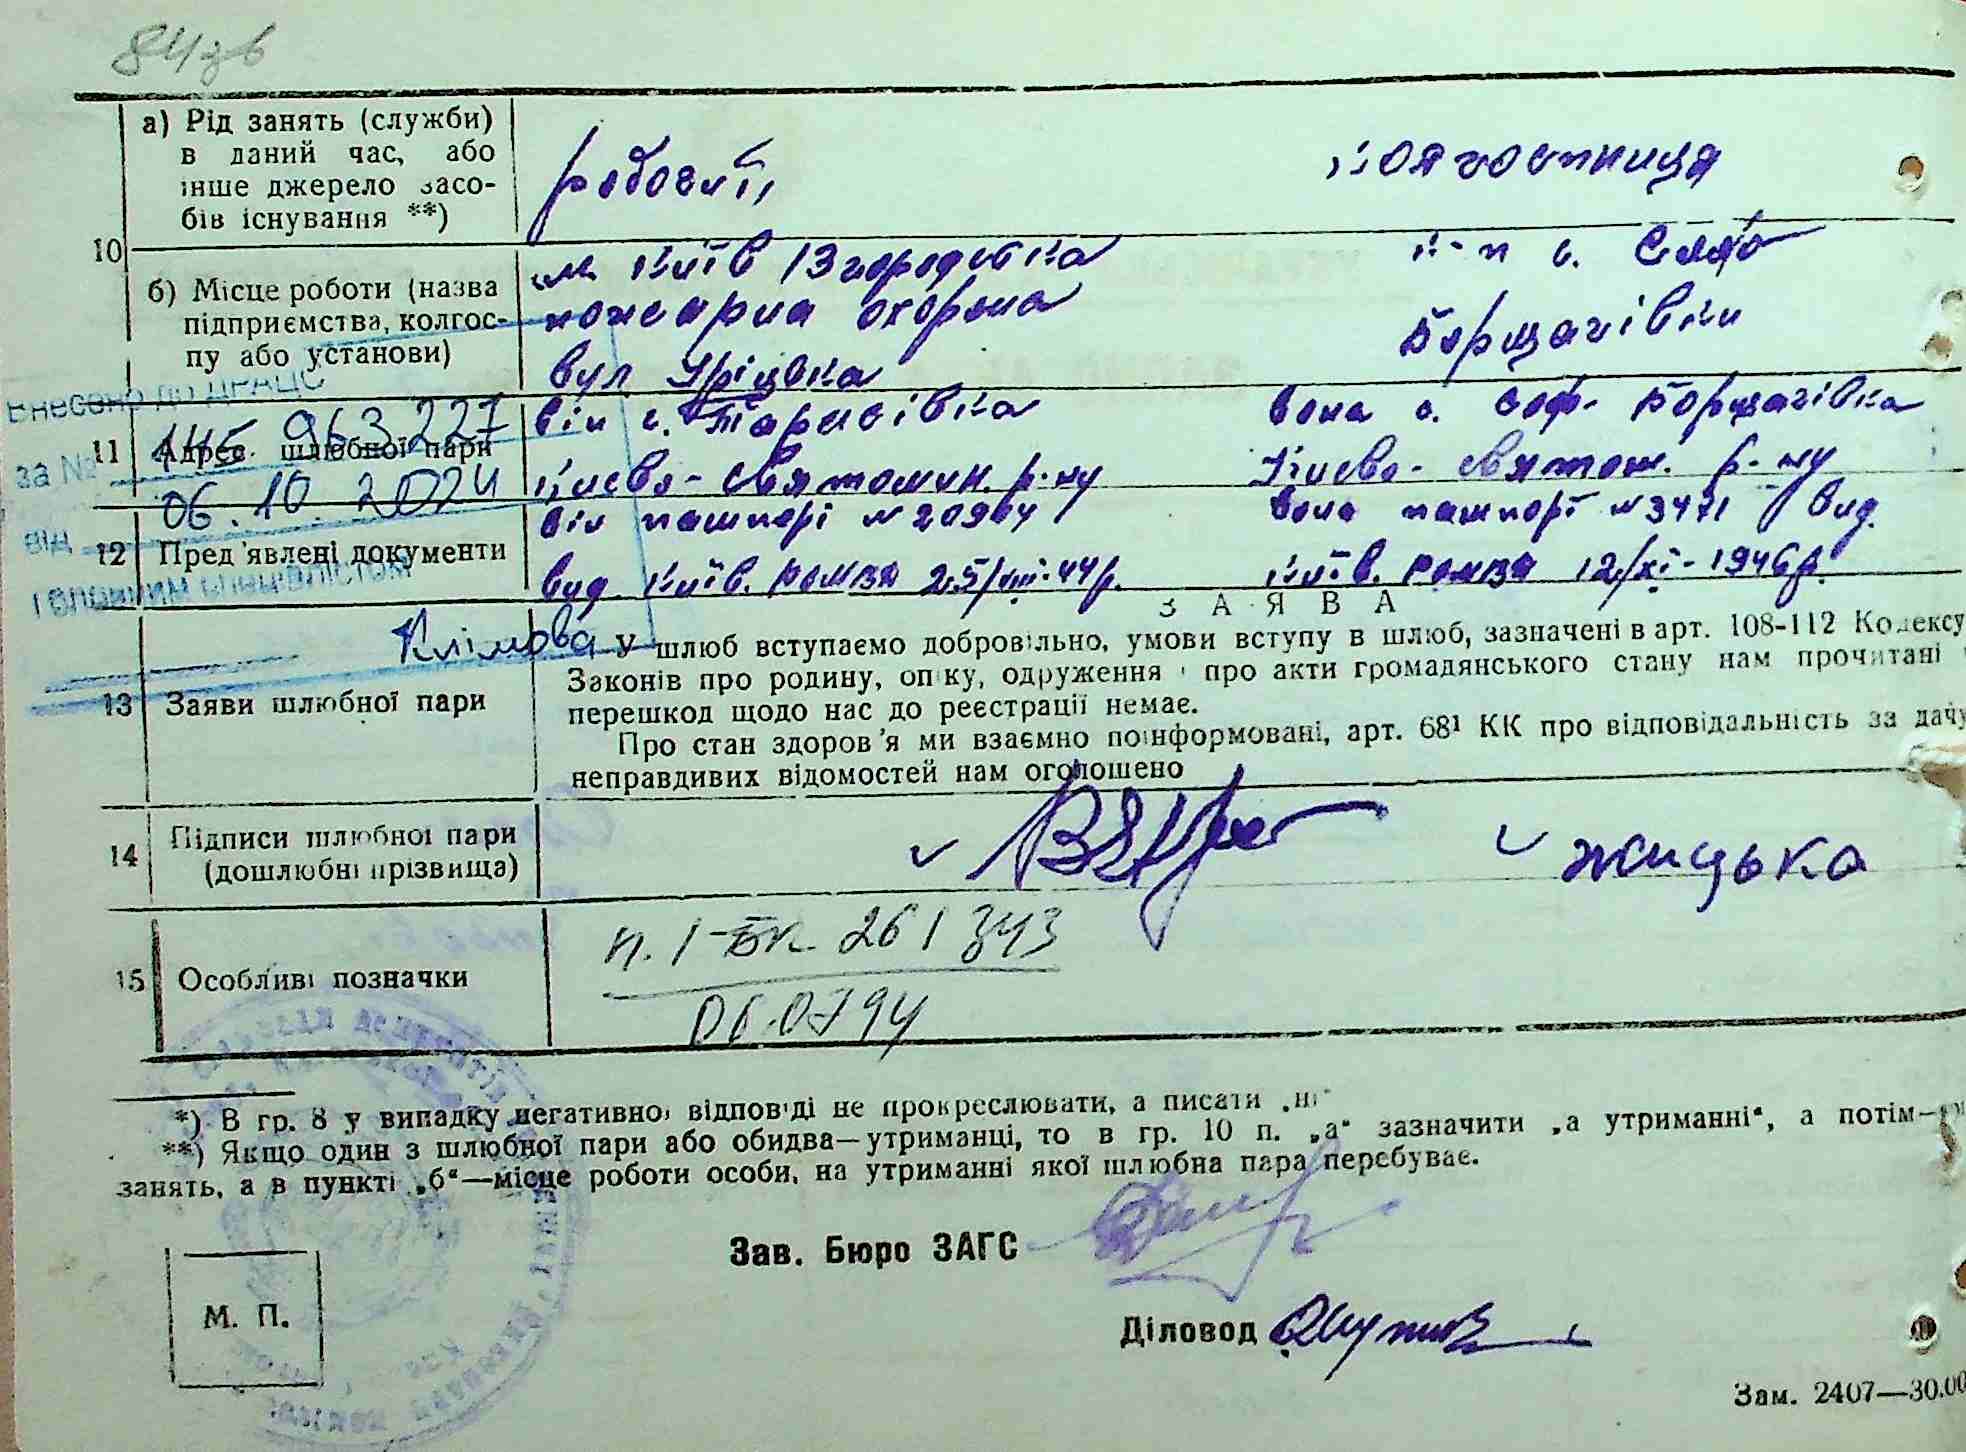 84зв
а) Рід занять (служби)
в даний час, або
інше джерело засо-
бів існування **)
робочий
колгоспниця
10
б) Місце роботи (назва
підприємства, колгос-
пу або установи)
м. Київ 13 городська
пожарна охорона
вул Уріцька
к-п с. Соф
Борщагівки
Внесено до ДРАЦС
за № 963 227
від 06.10.2024
Головним спеціалістом
Клімова
11 Адрес шлюбної пари
він с. Тарасівка
Києво-Святошин. р-ну
вона с. Соф. Борщагівка
Києво-Святош. р-ну
12 Пред'явлені документи
він пашпорт №20964
вид Київ. РОМВД 25/VIII-44р.
вона пашпорт №3471 вид.
Київ. РОМВД 12/XI-1946р.
ЗАЯВА
13 Заяви шлюбної пари
У шлюб вступаємо добровільно, умови вступу в шлюб, зазначені в арт. 108-112 Кодексу
Законів про родину, опіку, одруження і про акти громадянського стану нам прочитані
перешкод щодо нас до реєстрації немає.
Про стан здоров'я ми взаємно поінформовані, арт. 68¹ КК про відповідальність за дачу
неправдивих відомостей нам оголошено
14 Підписи шлюбної пари
(дошлюбні прізвища)
Жицька
15 Особливі позначки
п. І-БК 261343
06.0794
*) В гр. 8 у випадку негативної відповіді не прокреслювати, а писати „ні"
**) Якщо один з шлюбної пари або обидва—утриманці, то в гр. 10 п. „а" зазначити „а утриманні", а потім—рі
занять, а в пункті „б"—місце роботи особи, на утриманні якої шлюбна пара перебуває.
Зав. Бюро ЗАГС
М. П.
Діловод
Зам. 2407—30.00